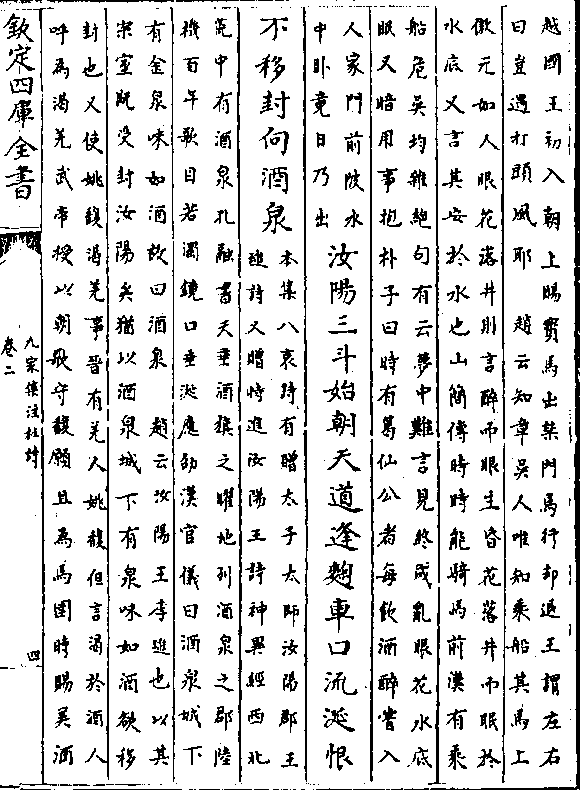 越國王初入朝上賜寶馬出禁門馬行却退王謂左右
曰豈遇打頭風耶　趙云知章吳人唯知乘船其馬上
傲兀如人眼花落井則言醉而眼生昏花落井而眠於
水底又言其安於水也山簡傳時時能騎馬前漢有乘
船危吳均雜絶句有云夢中難言見終成亂眼花水底
眠又暗用事抱朴子曰時有葛仙公者每飲酒醉嘗入
人家門前陂水
中卧竟日乃出
汝陽三斗始朝天道逢麴車口流涎恨
不移封向酒泉
本集八哀詩有贈太子太師汝陽郡王
璡詩又贈特進汝陽王詩神異經西北
荒中有酒泉孔融書天垂酒旗之曜地列酒泉之郡陸
機百年歌目若濁鏡口垂涎應劭漢官儀曰酒泉城下
有金泉味如酒故曰酒泉　趙云汝陽王李璡也以其
宗室既受封汝陽矣猶以酒泉城下有泉味如酒欲移
封也又使姚馥渴羌事晉有羌人姚馥但言渴於酒人
呼為渴羌武帝授以朝歌守馥願且為馬圉時賜美酒
欽定四庫全書
九家集注杜詩
卷二
四